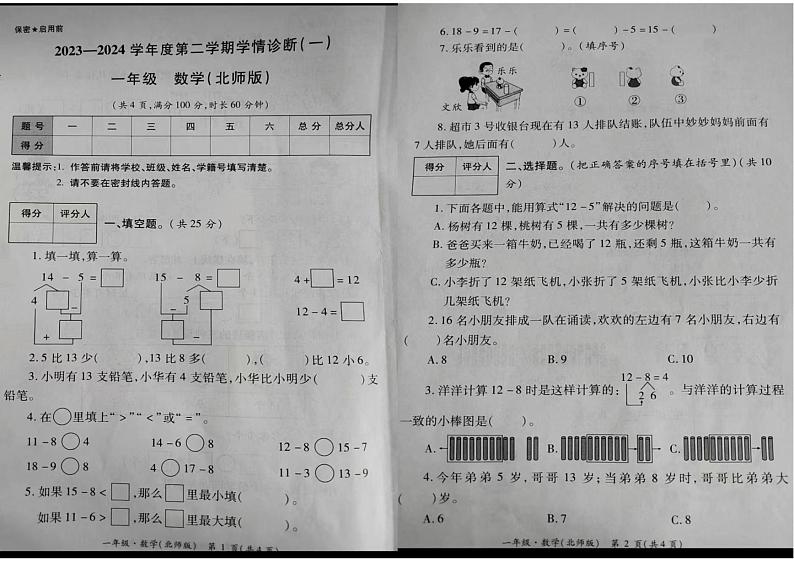 保密★启用前
2023—2024 学年度第二学期学情诊断(一)
一年级 数学(北师版)
(共 4 页,满分 100 分,时长 60 分钟)
题 号 一 二 三 四 五 六 总 分 总分人
得 分
温馨提示:1. 作答前请将学校、班级、姓名、学籍号填写清楚。
2. 请不要在密封线内答题。
得分 评分人
一、填空题。(共 25 分)
1. 填一填,算一算。
14 - 5 = □ 15 - 8 = □ 4 + □ = 12
4 □ - □ 5 12 - 4 = □
- □ + □
+ -
2. 5 比 13 少( ),13 比 8 多( ),( )比 12 小 6。
3. 小明有 13 支铅笔,小华有 4 支铅笔,小华比小明少( )支
铅笔。
4. 在○里填上“ > ”“ < ”或“ = ”。
11 - 8 ○ 4 14 - 6 ○ 8 12 - 8 ○ 15 - 7
18 - 9 ○ 8 4 ○ 17 - 8 11 - 3 ○ 13 - 9
5. 如果 15 - 8 < □ ,那么 □ 里最小填( )。
如果 11 - 6 > □ ,那么 □ 里最大填( )。
一年级·数学(北师版) 第 1 页(共 4 页)
6. 18 - 9 = 17 - ( ) = ( ) - 5 = 15 - ( )
7. 乐乐看到的是( )。(填序号)
乐乐
文欣
① ② ③
8. 超市 3 号收银台现在有 13 人排队结账,队伍中妙妙妈妈前面有
7 人排队,她后面有( )人。
得分 评分人
二、选择题。(把正确答案的序号填在括号里)(共 10
分)
1. 下面各题中,能用算式“12 - 5”解决的问题是( )。
A. 杨树有 12 棵,桃树有 5 棵,一共有多少棵树?
B. 爸爸买来一箱牛奶,已经喝了 12 瓶,还剩 5 瓶,这箱牛奶一共有
多少瓶?
C. 小李折了 12 架纸飞机,小张折了 5 架纸飞机,小张比小李少折
几架纸飞机?
2. 16 名小朋友排成一队在诵读,欢欢的左边有 7 名小朋友,右边有
( )名小朋友。
A. 8 B. 9 C. 10
3. 洋洋计算 12 - 8 时是这样计算的: 12 - 8 = 4 。与洋洋的计算过程
2 6
一致的小棒图是( )。
A. B. C.
4. 今年弟弟 5 岁,哥哥 13 岁;当弟弟 8 岁时,哥哥比弟弟大
( )岁。
A. 6 B. 7 C. 8
一年级·数学(北师版) 第 2 页(共 4 页)